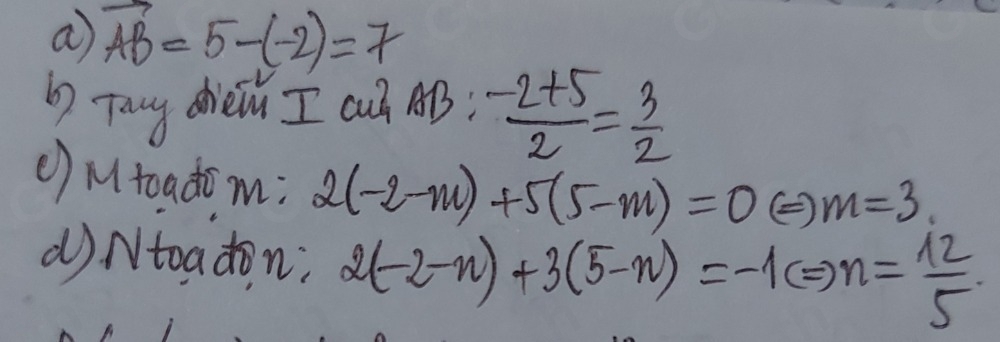 a) \overrightarrow{AB} = 5-(-2) = 7
b) Trung điểm I của AB: \frac{-2+5}{2} = \frac{3}{2}
c) M tọa độ m: 2(-2-m) + 5(5-m) = 0 ⇔ m = 3.
d) N tọa độ n: 2(-2-n) + 3(5-n) = -1 ⇔ n = \frac{12}{5}.